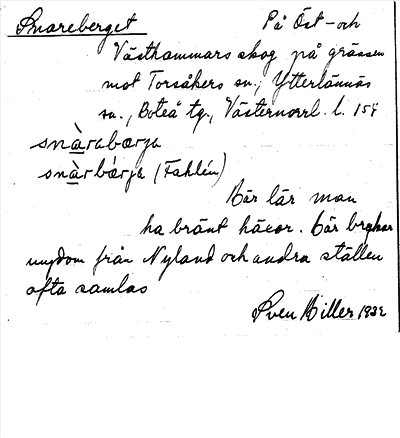 Snareberget På Öst- och
Västhammars skog på gränsen
mot Torsåkers sn., Ytterlännäs
sn., Boteå tg., Västernorrl. l. 154
snàrabærja
snàrbárja (Fahlén)
Här lär man
ha bränt häxor. Här brukar
ungdom från Nyland och andra ställen
ofta samlas
Sven Hiller 1932